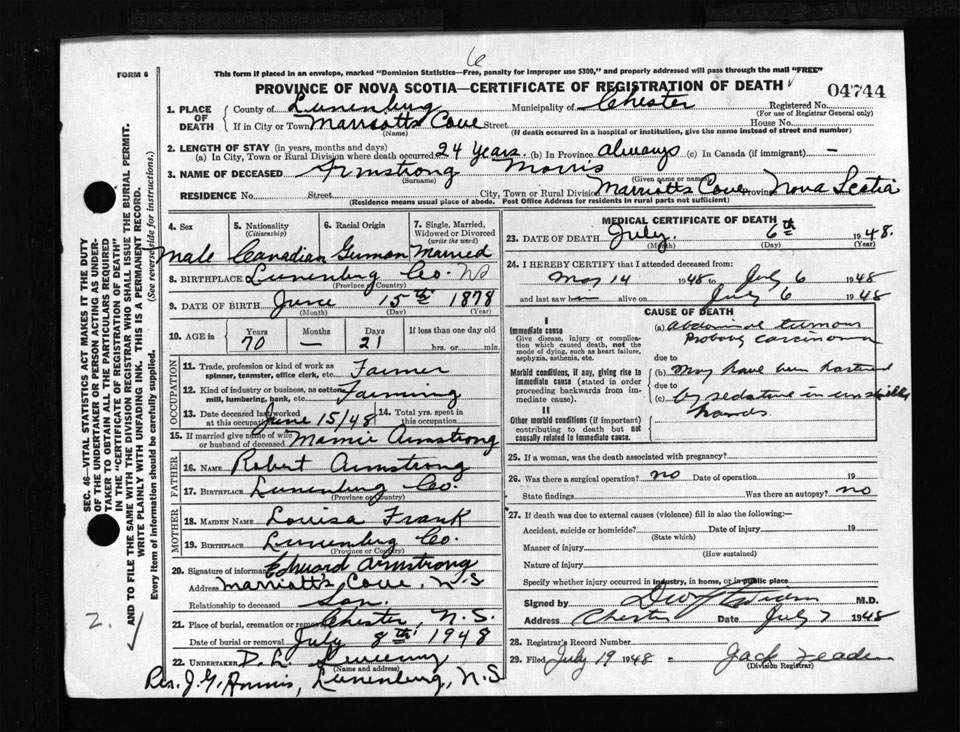 6
FORM 6
This form if placed in an envelope, marked "Dominion Statistics—Free, penalty for improper use $300," and properly addressed will pass through the mail "FREE"
PROVINCE OF NOVA SCOTIA—CERTIFICATE OF REGISTRATION OF DEATH
04744
1. PLACE OF DEATH
County of Lunenburg Municipality of Chester Registered No.
(For use of Registrar General only)
If in City or Town Marriotts Cove Street House No.
(Name) (If death occurred in a hospital or institution, give the name instead of street and number)
2. LENGTH OF STAY (in years, months and days)
(a) In City, Town or Rural Division where death occurred 24 years. (b) In Province always (c) In Canada (if immigrant) —
3. NAME OF DECEASED Armstrong Morris
(Surname) (Given name or names)
RESIDENCE No. Street City, Town or Rural Division Marriotts Cove Province Nova Scotia
(Residence means usual place of abode. Post Office Address for residents in rural parts not sufficient)
SEC. 46—VITAL STATISTICS ACT MAKES IT THE DUTY
OF THE UNDERTAKER OR PERSON ACTING AS UNDER-
TAKER TO OBTAIN ALL THE PARTICULARS REQUIRED
IN THE "CERTIFICATE OF REGISTRATION OF DEATH"
AND TO FILE THE SAME WITH THE DIVISION REGISTRAR WHO SHALL ISSUE THE BURIAL PERMIT.
WRITE PLAINLY WITH UNFADING INK. THIS IS A PERMANENT RECORD.
Every item of information should be carefully supplied. (See reverse side for instructions.)
2.
4. Sex
Male
5. Nationality (Citizenship)
Canadian
6. Racial Origin
German
7. Single, Married, Widowed or Divorced (write the word)
Married
8. BIRTHPLACE Lunenburg Co. NS
(Province or Country)
9. DATE OF BIRTH June 15th 1878
(Month) (Day) (Year)
10. AGE in
Years 70
Months —
Days 21
If less than one day old
hrs. or min.
OCCUPATION
11. Trade, profession or kind of work as spinner, teamster, office clerk, etc. Farmer
12. Kind of industry or business, as cotton mill, lumbering, bank, etc. Farming
13. Date deceased last worked at this occupation June 15/48
14. Total yrs. spent in this occupation
15. If married give name of wife or husband of deceased Mamie Armstrong
FATHER
16. NAME Robert Armstrong
17. BIRTHPLACE Lunenburg Co.
(Province or Country)
MOTHER
18. MAIDEN NAME Louisa Frank
19. BIRTHPLACE Lunenburg Co.
(Province or Country)
20. Signature of informant Edward Armstrong
Address Marriotts Cove, N.S
Relationship to deceased Son.
21. Place of burial, cremation or removal Chester, N.S.
Date of burial or removal July 8th 1948
22. UNDERTAKER D. L.
(Name and address)
Per. J. G. Lunenburg, N.S
MEDICAL CERTIFICATE OF DEATH
23. DATE OF DEATH July. 6th 1948.
(Month) (Day) (Year)
24. I HEREBY CERTIFY that I attended deceased from:
May 14 1948 to July 6 1948
and last saw him alive on July 6 1948
CAUSE OF DEATH
I
Immediate cause
Give disease, injury or complication which caused death, not the mode of dying, such as heart failure, asphyxia, asthenia, etc.
(a) abdominal tumour
Probably carcinoma
due to
Morbid conditions, if any, giving rise to immediate cause (stated in order proceeding backwards from immediate cause).
(b) May have been hastened
due to
(c) by sedative in unskilled
hands.
II
Other morbid conditions (if important) contributing to death but not causally related to immediate cause.
25. If a woman, was the death associated with pregnancy?
26. Was there a surgical operation? no Date of operation 19
State findings Was there an autopsy? no
27. If death was due to external causes (violence) fill in also the following:—
Accident, suicide or homicide? Date of injury 19
(State which)
Manner of injury
(How sustained)
Nature of injury
Specify whether injury occurred in industry, in home, or in public place
Signed by M.D.
Address Chester Date July 7 1948
28. Registrar's Record Number
29. Filed July 19 1948 — Jack
(Division Registrar)